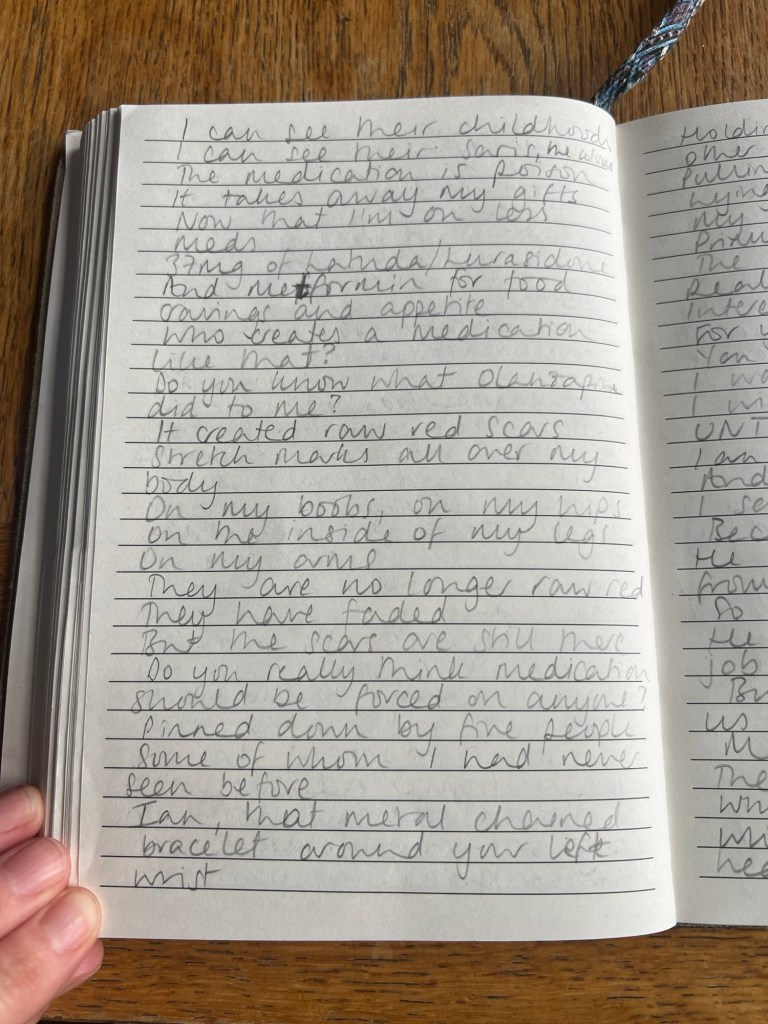 I can see their childhoods
I can see their saris, the colours
The medication is poison
It takes away my gifts
Now that I'm on less
meds
37mg of Latuda/Lurasidone
And metformin for food
cravings and appetite
Who creates a medication
like that?
Do you know what Olanzapine
did to me?
It created raw red scars
Stretch marks all over my
body
On my boobs, on my hips
On the inside of my legs
On my arms
They are no longer raw red
They have faded
But the scars are still there
Do you really think medication
should be forced on anyone?
Pinned down by five people
Some of whom I had never
seen before
Ian, that metal chained
bracelet around your left
wrist
Holding
other
Pullin
Lying
My
The
Real
Intere
For y
You
I wa
I wi
UNT
I am
And
I se
Bec
He
from
So
He
job
Bu
us
M
The
wh
whi
hea